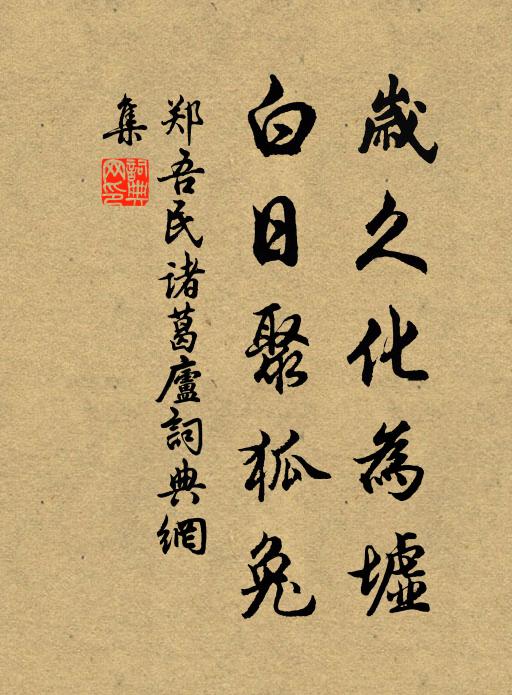 歲久化為墟
白日聚狐兔
郑吾民诸葛廬詞典網
集
詞典
网印